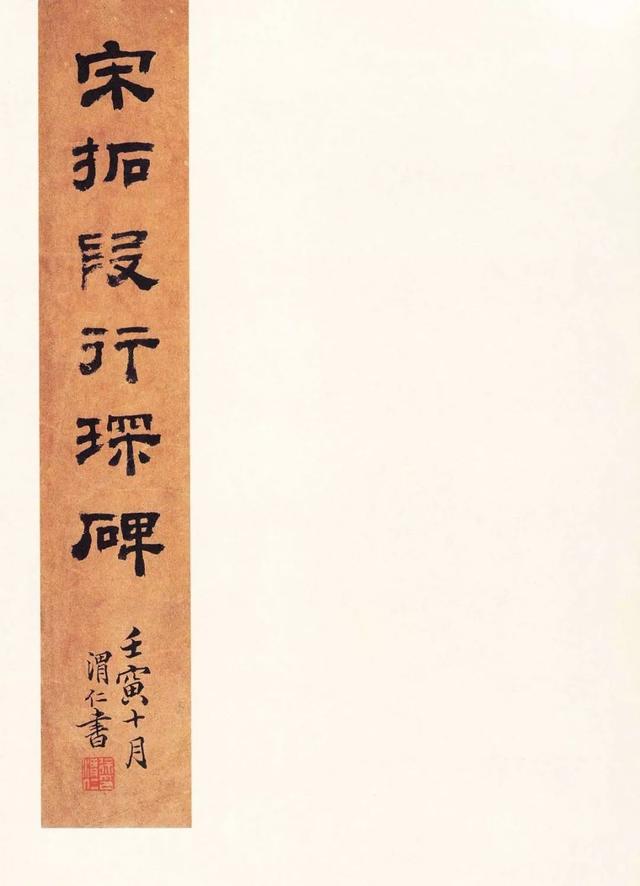 宋拓段行琛碑
壬寅十月
渭仁書